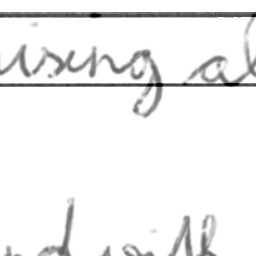 ising al
nd with